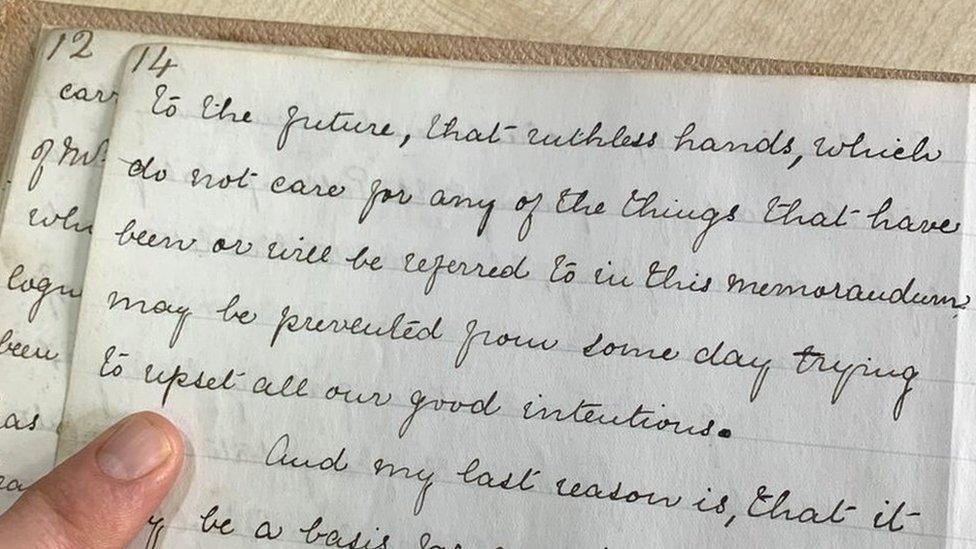 12
14
carr
of Mrs
whi
logu
been
as
to the future, that ruthless hands, which
do not care for any of the things that have
been or will be referred to in this memorandum,
may be prevented from some day trying
to upset all our good intentions.
And my last reason is, that it
be a basis for